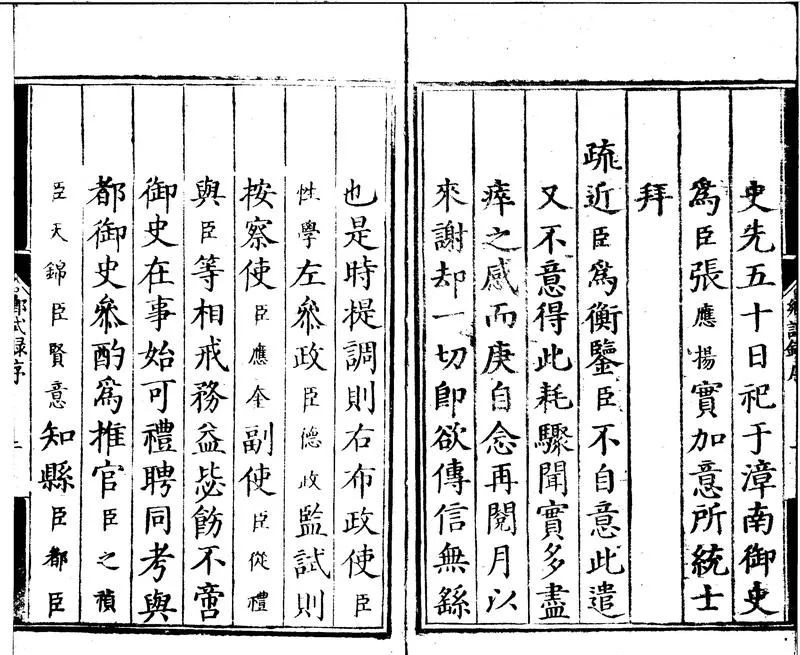 史先五十日祀于漳南御史
爲臣張應揚實加意所統士
拜
疏近臣爲衡鑒臣不自意此遣
又不意得此耗驟聞實多盡
瘁之感而庚自念再閱月以
來謝却一切卽欲傳信無繇
也是時提調則右布政使臣
性學左叅政臣德政監試則
按察使臣應奎副使臣從禮
與臣等相戒務益毖飭不啻
御史在事始可禮聘同考與
都御史叅酌爲推官臣之禎
臣天錦臣賢意知縣臣都臣
鄉試錄序
鄉試錄序